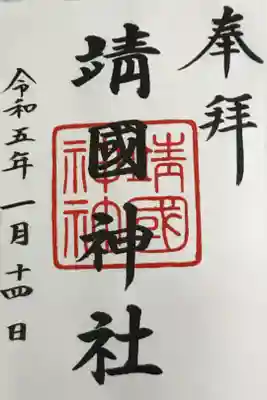 奉拝
靖國神社
靖國神社
令和五年一月十四日